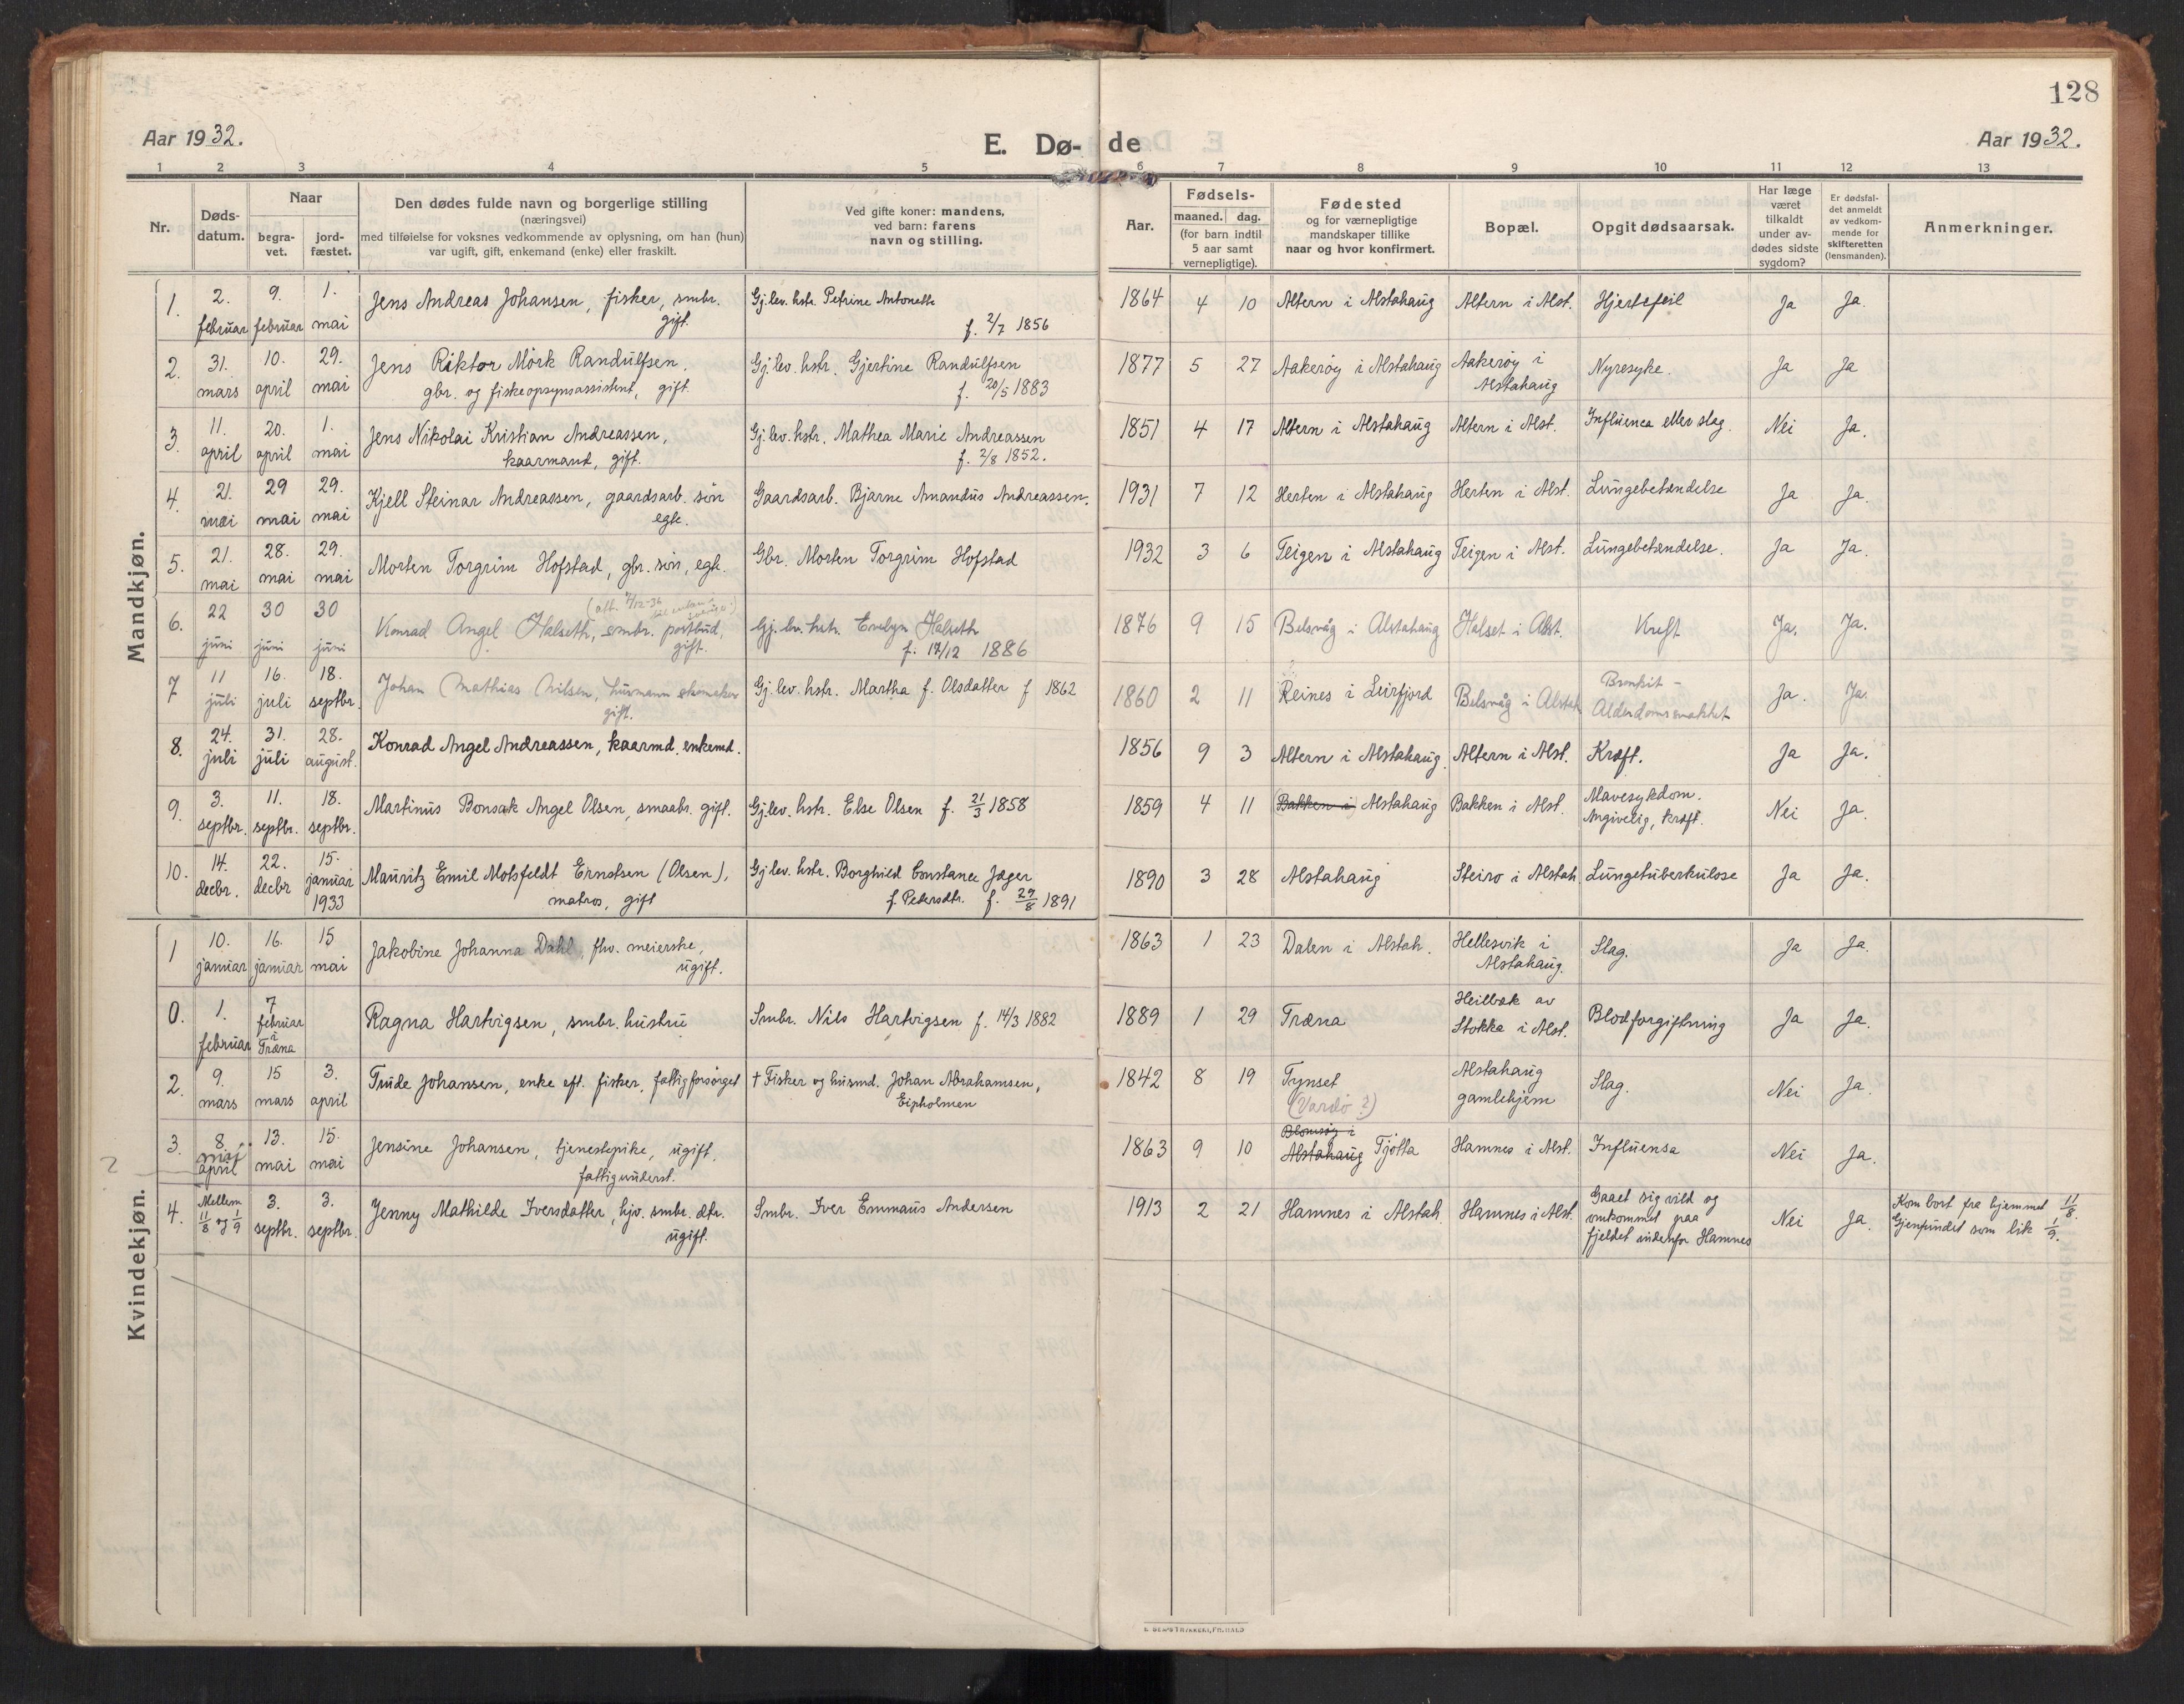 128
Aar 1932.
E. Dø- de
Aar 1932.
1 2 3 4 5 6 7 8 9 10 11 12 13
Nr.
Døds-
datum.
Naar
begra-
vet.
jord-
fæstet.
Den dødes fulde navn og borgerlige stilling
(næringsvei)
med tilføielse for voksnes vedkommende av oplysning, om han (hun)
var ugift, gift, enkemand (enke) eller fraskilt.
Ved gifte koner: mandens,
ved barn: farens
navn og stilling.
Aar.
Fødsels-
maaned. dag.
(for barn indtil
5 aar samt
vernepligtige).
Fødested
og for værnepligtige
mandskaper tillike
naar og hvor konfirmert.
Bopæl.
Opgit dødsaarsak.
Har læge
været
tilkaldt
under av-
dødes sidste
sygdom?
Er dødsfal-
det anmeldt
av vedkom-
mende for
skifteretten
(lensmanden).
Anmerkninger.
Mandkjøn.
1. 2. februar 9. februar 1. mai
Jens Andreas Johansen, fisker, smbr.
gift.
Gj. lev. hstr. Petrine Antonette
f. 2/7 1856
1864 4 10 Altern i Alstahaug Altern i Alst. Hjertefeil Ja Ja.
2. 31. mars 10. april 29. mai
Jens Riktor Mörk Randulfsen,
gbr. og fiskeopsynsassistent, gift.
Gj. lev. hstr. Gjertine Randulfsen
f. 20/5 1883
1877 5 27 Aakerøy i Alstahaug Aakerøy i
Alstahaug
Nyresyke. Ja Ja
3. 11. april 20. april 1. mai
Jens Nikolai Kristian Andreassen,
kaarmand, gift.
Gj. lev. hstr. Mathea Marie Andreassen
f. 2/8 1852.
1851 4 17 Altern i Alstahaug Altern i Alst. Influenca eller slag. Nei Ja.
4. 21. mai 29 mai 29. mai
Kjell Steinar Andreassen, gaardsarb. sön
egte.
Gaardsarb. Bjarne Amandus Andreassen.
1931 7 12 Herten i Alstahaug Herten i Alst. Lungebetændelse Ja Ja.
5. 21. mai 28. mai 29. mai
Morten Torgrim Hofstad, gbr. sön, egte.
Gbr. Morten Torgrim Hofstad
1932 3 6 Teigen i Alstahaug Teigen i Alst. Lungebetændelse. Ja Ja.
6. 22 juni 30 juni 30 juni
Konrad Angel Halseth, smbr. postbud,
gift.
Gj. lv. hstr. Evelyn Halseth
f. 17/12 1886
1876 9 15 Belsvåg i Alstahaug Halset i Alst. Kreft Ja. Ja.
7 11 juli 16. juli 18. septbr.
Johan Mathias Nilsen, husmann skomaker
gift.
Gj. lev. hstr. Martha f. Olsdatter f 1862
1860 2 11 Reines i Leirfjord Belsvåg i Alstah Bronkit -
Alderdomssvakhet
Ja. Ja.
8. 24. juli 31. juli 28. august.
Konrad Angel Andreassen, kaarmd. enkemd.
1856 9 3 Altern i Alstahaug. Altern i Alst. Kræft. Ja Ja.
9. 3. septbr. 11. septbr. 18. septbr.
Martinus Bonsak Angel Olsen, smaabr. gift.
Gj. lev. hstr. Else Olsen f. 21/3 1858
1859 4 11 Bakken i Alstahaug Bakken i Alst. Mavesykdom.
Angivelig, kræft.
Nei Ja.
10. 14. decbr. 22. decbr 15. januar 1933
Mauritz Emil Motsfeldt Ernstsen (Olsen),
matros, gift
Gj. lev. hstr. Borghild Constance Jæger
f. Pedersdtr. f. 29/8 1891
1890 3 28 Alstahaug Steiro i Alstah Lungetuberkulose Ja Ja.
Kvindekjøn.
1 10. januar 16. januar 15 mai
Jakobine Johanna Dahl, fhv. meierske,
ugift.
1863 1 23 Dalen i Alstah. Hellesvik i
Alstahaug.
Slag. Ja Ja.
0. 1. februar 7 februar i Træna
Ragna Hartvigsen, smbr. hustru
Smbr. Nils Hartvigsen f. 14/3 1882
1889 1 29 Træna Heilbæk av
Stokka i Alst.
Blodforgiftning Ja Ja.
2. 9. mars 15 mars 3. april
Trude Johansen, enke eft. fisker, fattigforsörget
† Fisker og husmd. Johan Abrahamsen,
Eipholmen
1842 8 19 Tynset
(Vardö ?)
Alstahaug
gamlehjem
Slag. Nei Ja.
2
3. 8. april 13. mai 15. mai
Jensine Johansen, tjenestepike, ugift.
fattigunderst.
1863 9 10 Alstahaug Tjötta Hamnes i Alst. Influensa Nei Ja.
4. Mellem 11/8 og 1/9 3. septbr. 3. septbr.
Jenny Mathilde Iversdatter, hjv. smbr. dtr.
ugift.
Smbr. Iver Emmaus Andersen
1913 2 21 Hamnes i Alstah. Hamnes i Alst. Gaaet sig vild og
omkommet paa
fjeldet indenfor Hamnes
Nei Ja.
Kom bort fra hjemmet 11/8.
Gjenfundet som lik 1/9.